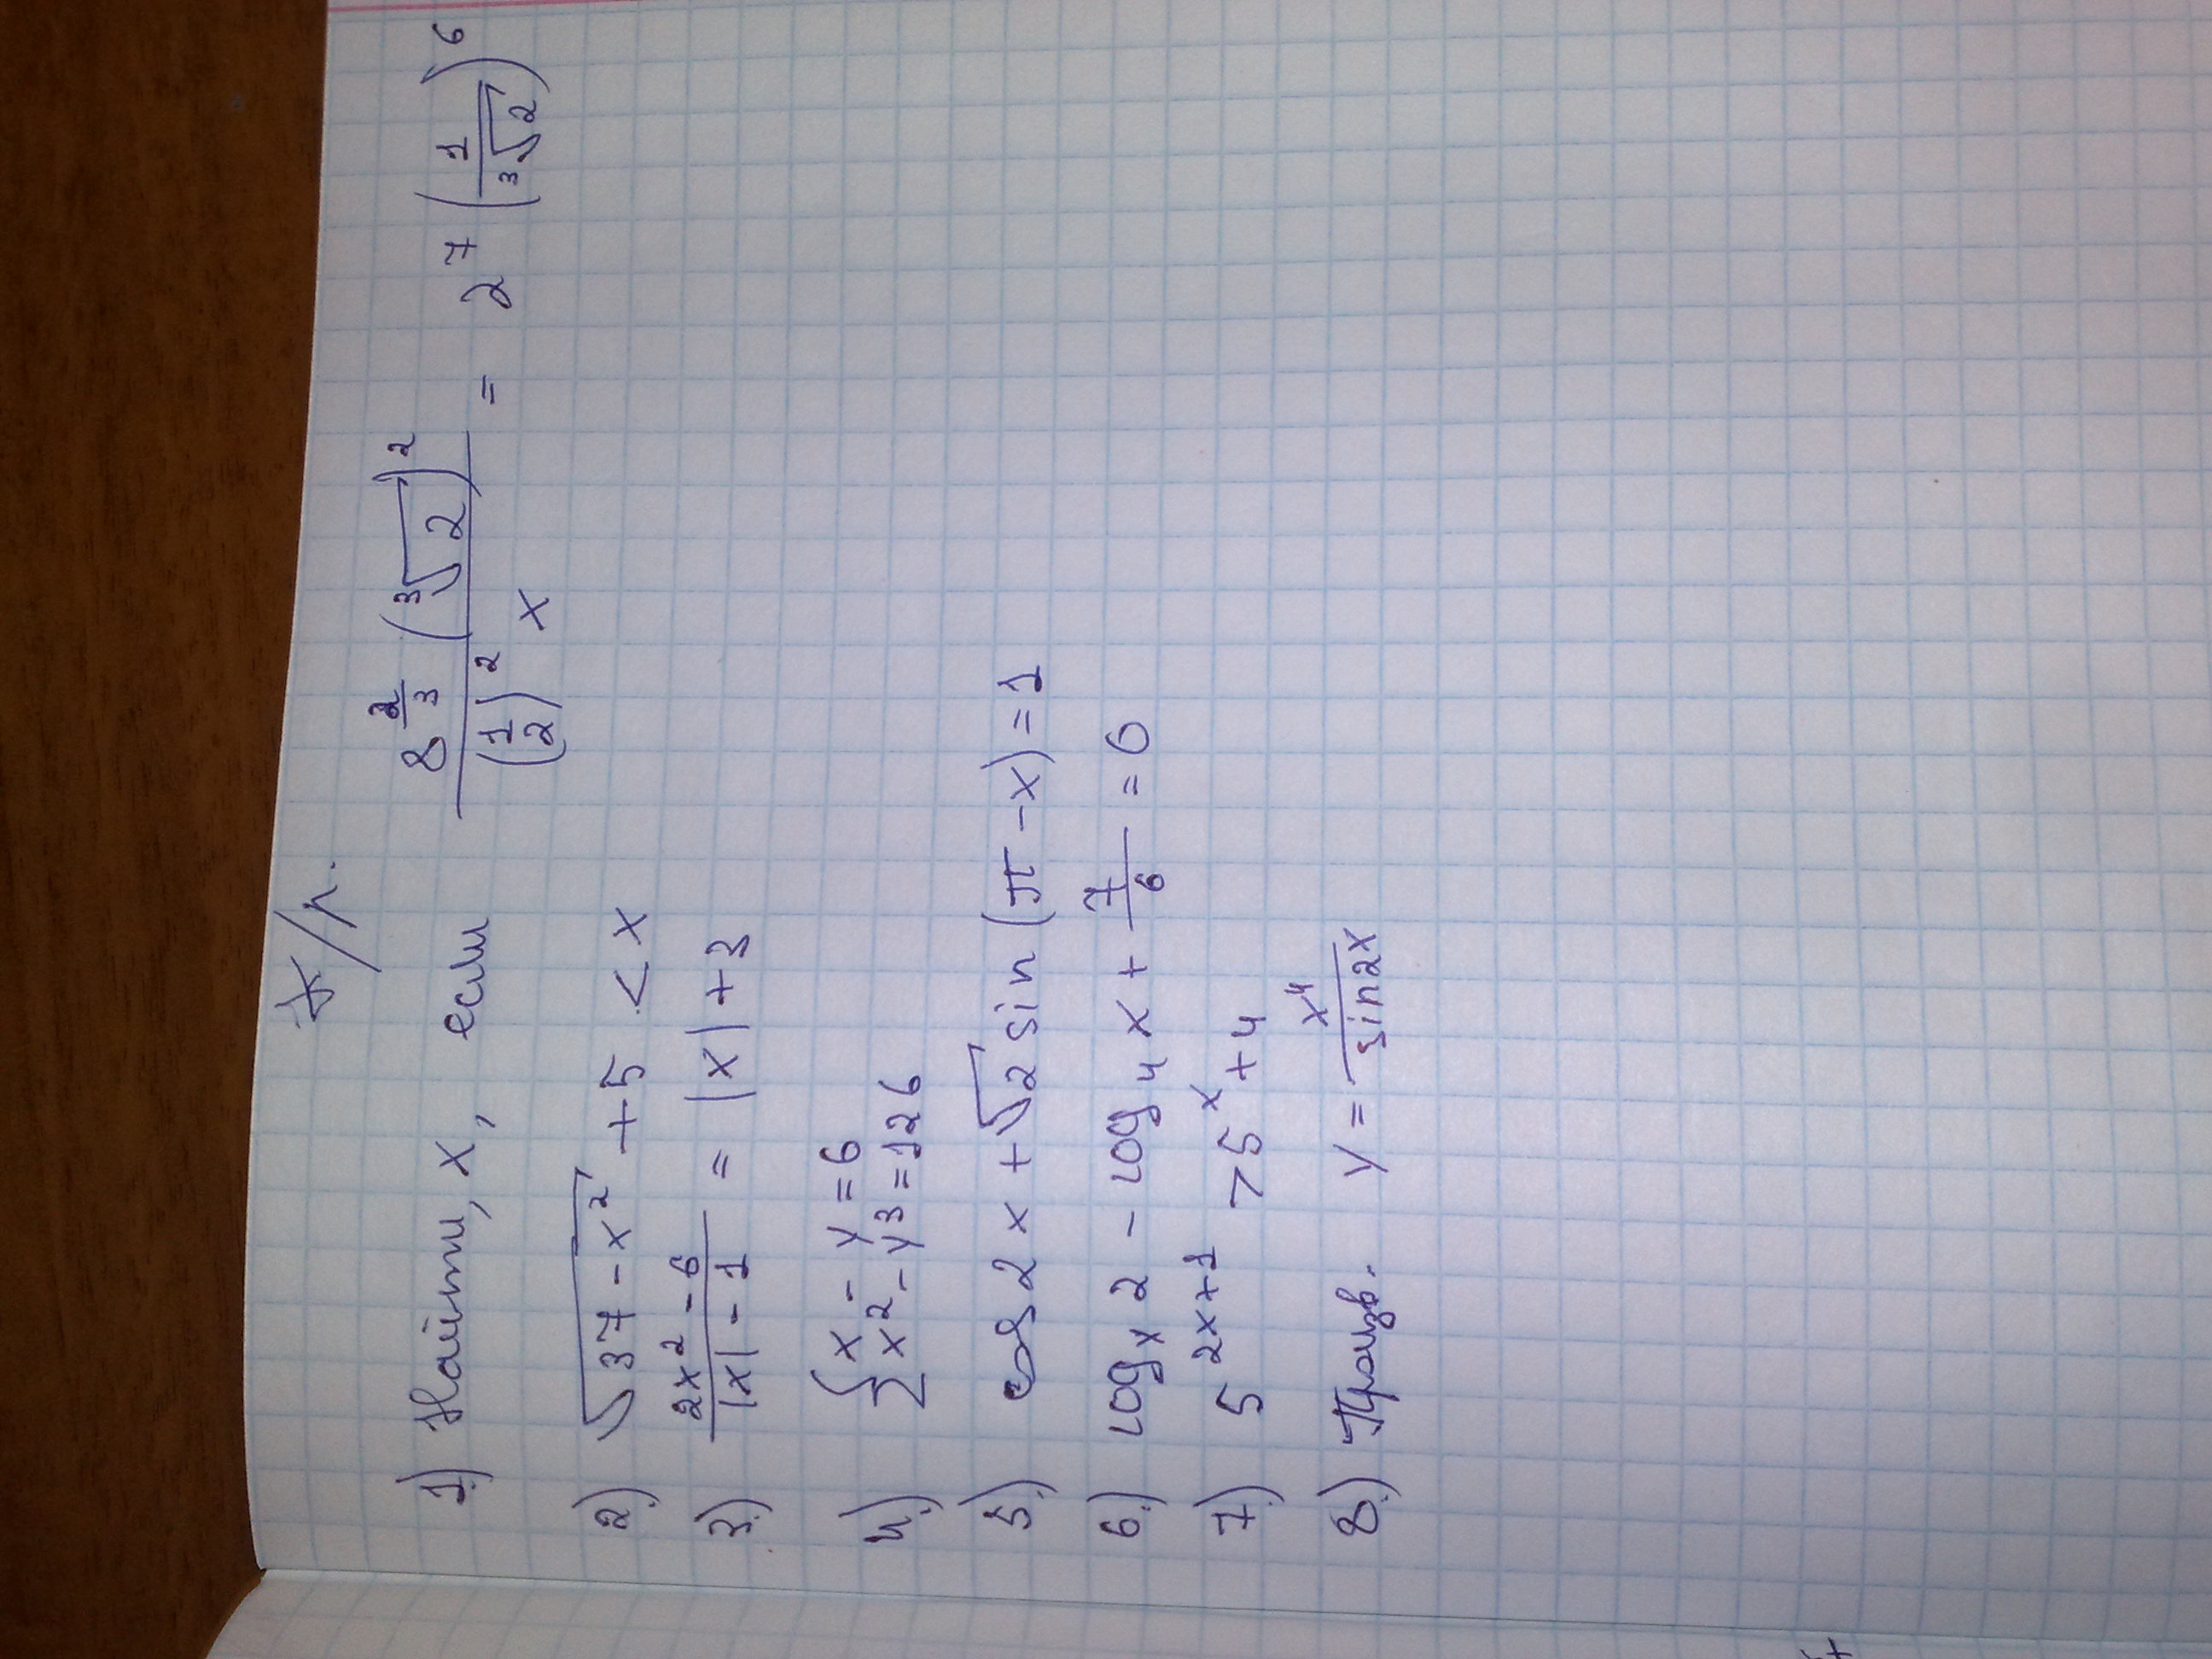 Д/р.
1.) Найти, x, если \frac{8^{\frac{2}{3}} (\sqrt[3]{2})^2}{(\frac{1}{2})^2 x} = 2^7 (\frac{1}{\sqrt[3]{2}})^6
2.) \sqrt{37 - x^2} + 5 < x
3.) \frac{2x^2 - 6}{|x| - 1} = |x| + 3
4.) { x - y = 6
x^2 - y3 = 126
5.) cos 2x + \sqrt{2} sin (π - x) = 1
6.) log_x 2 - log_4 x + \frac{7}{6} = 0
7.) 5^{2x+1} > 5^x + 4
8.) Произв. y = \frac{x^4}{sin2x}